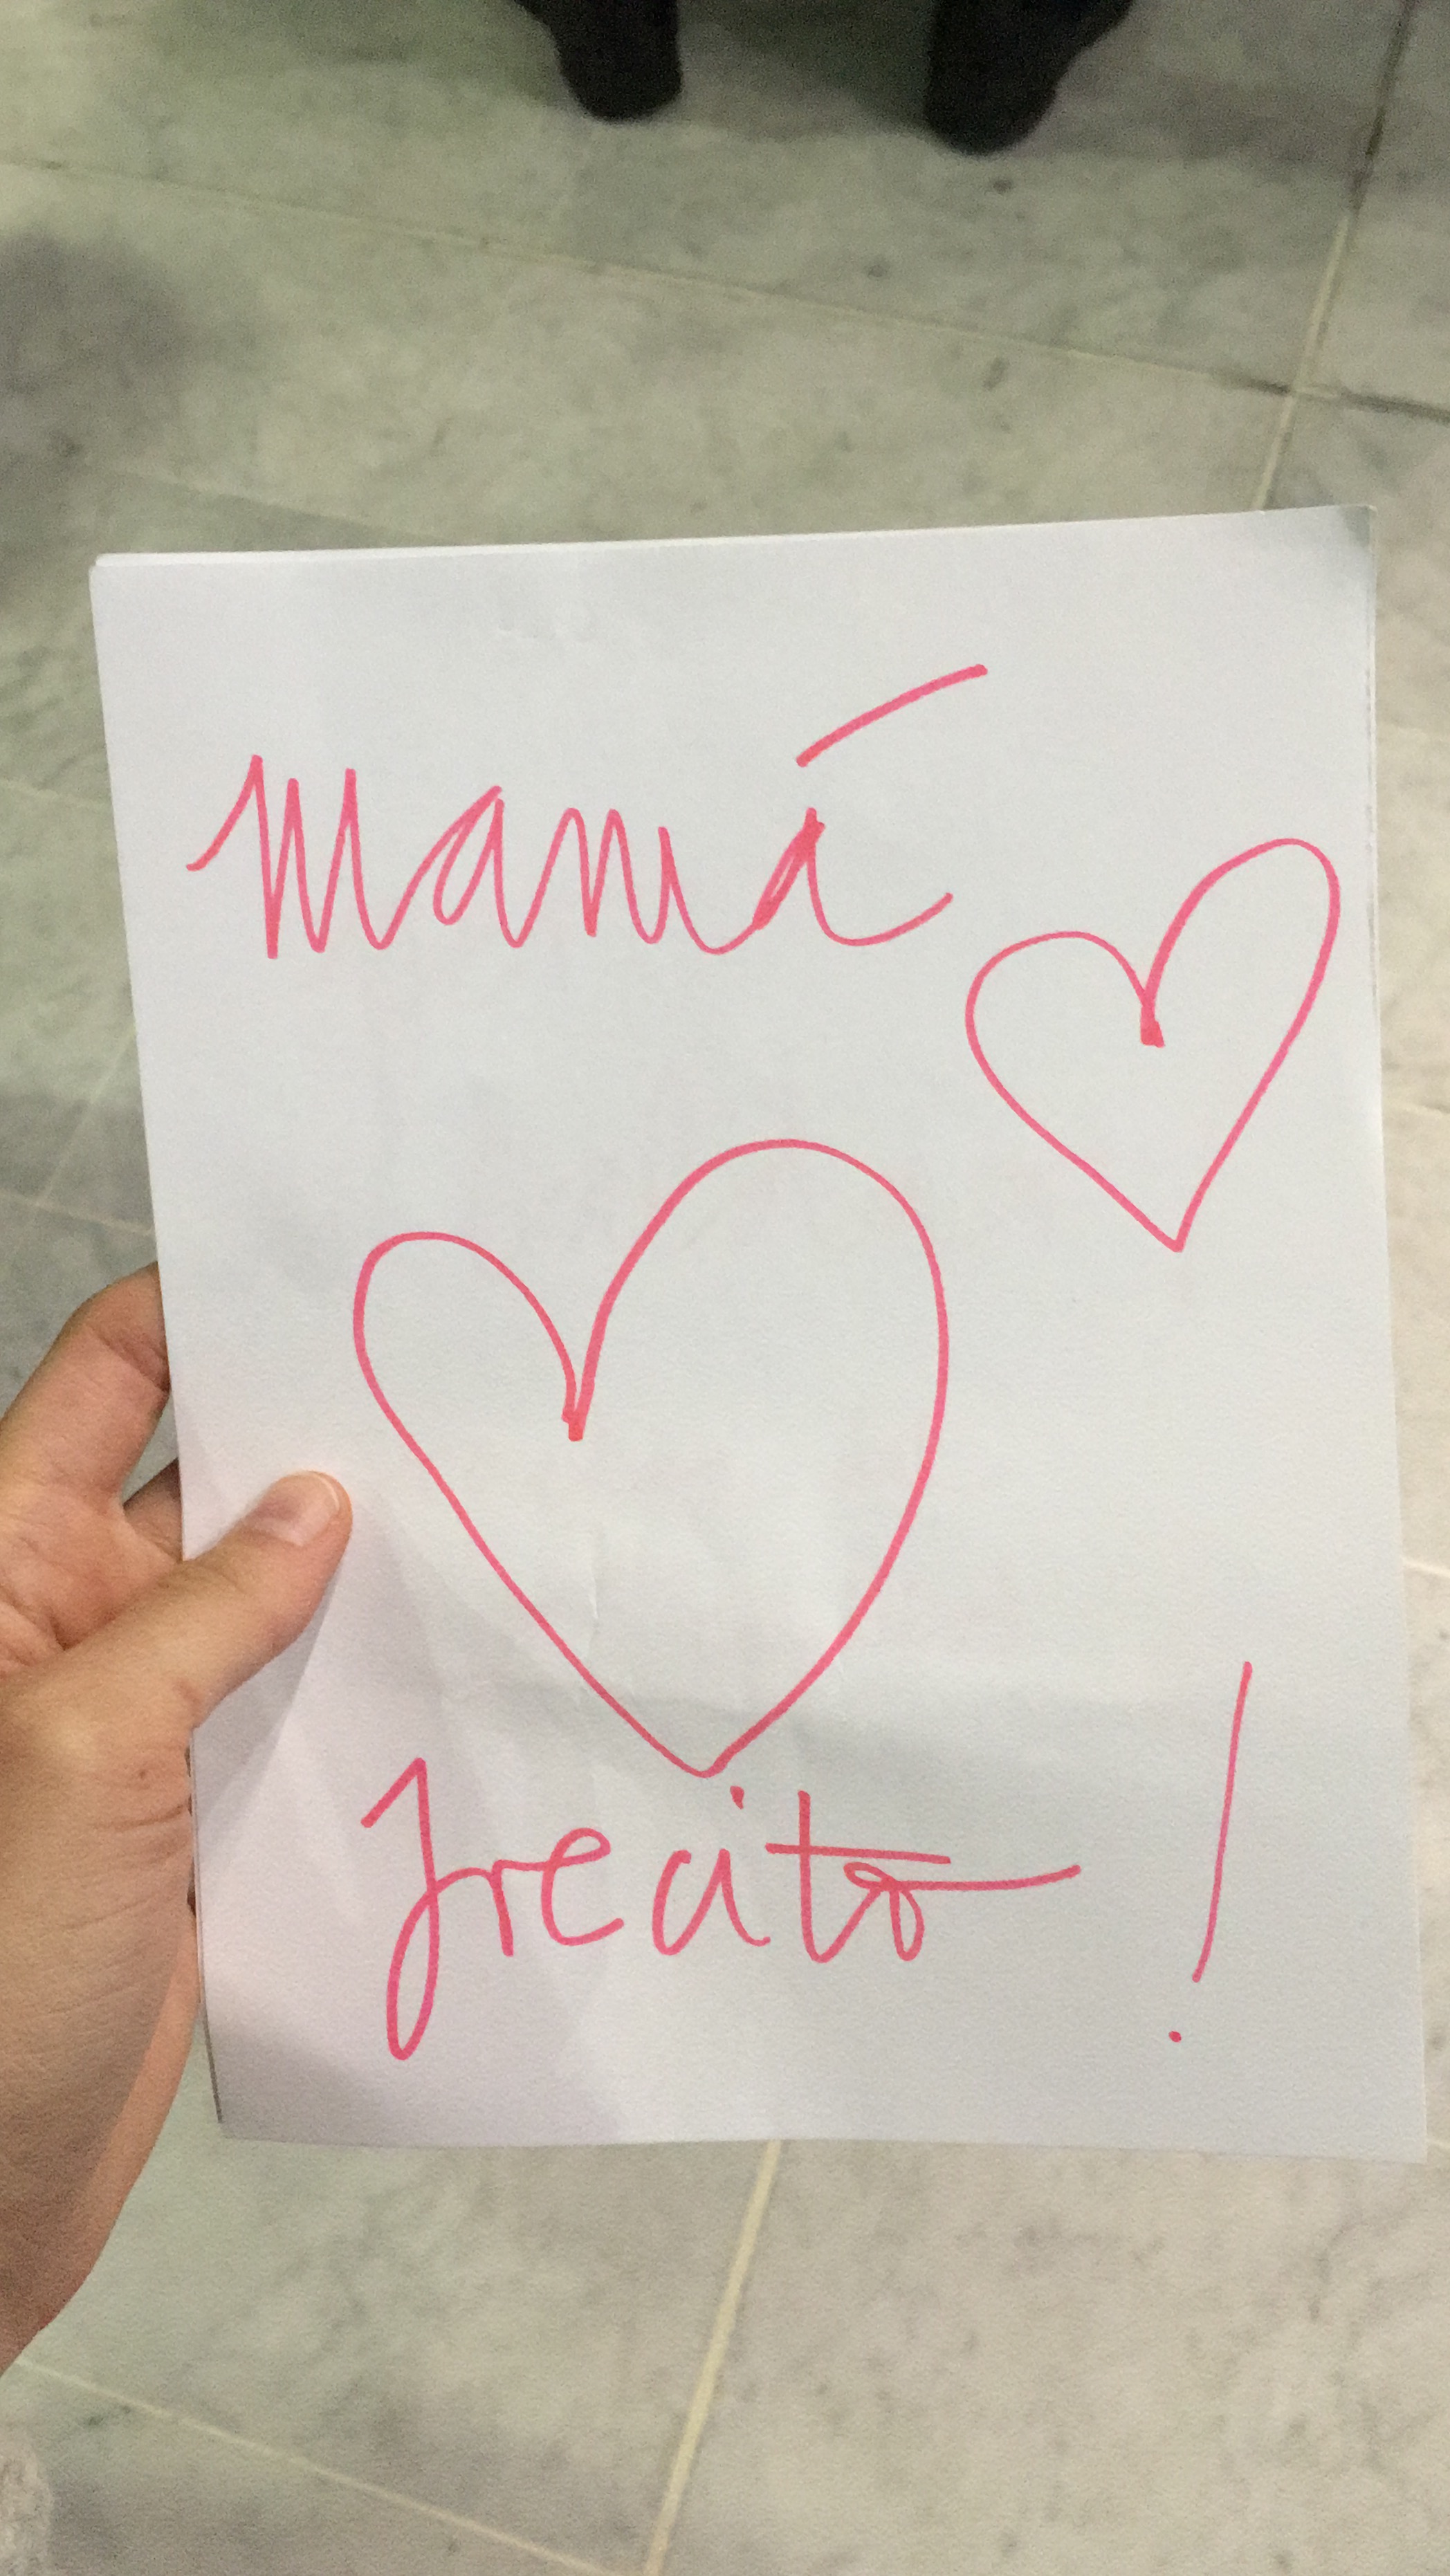 Mamá
Irecito!